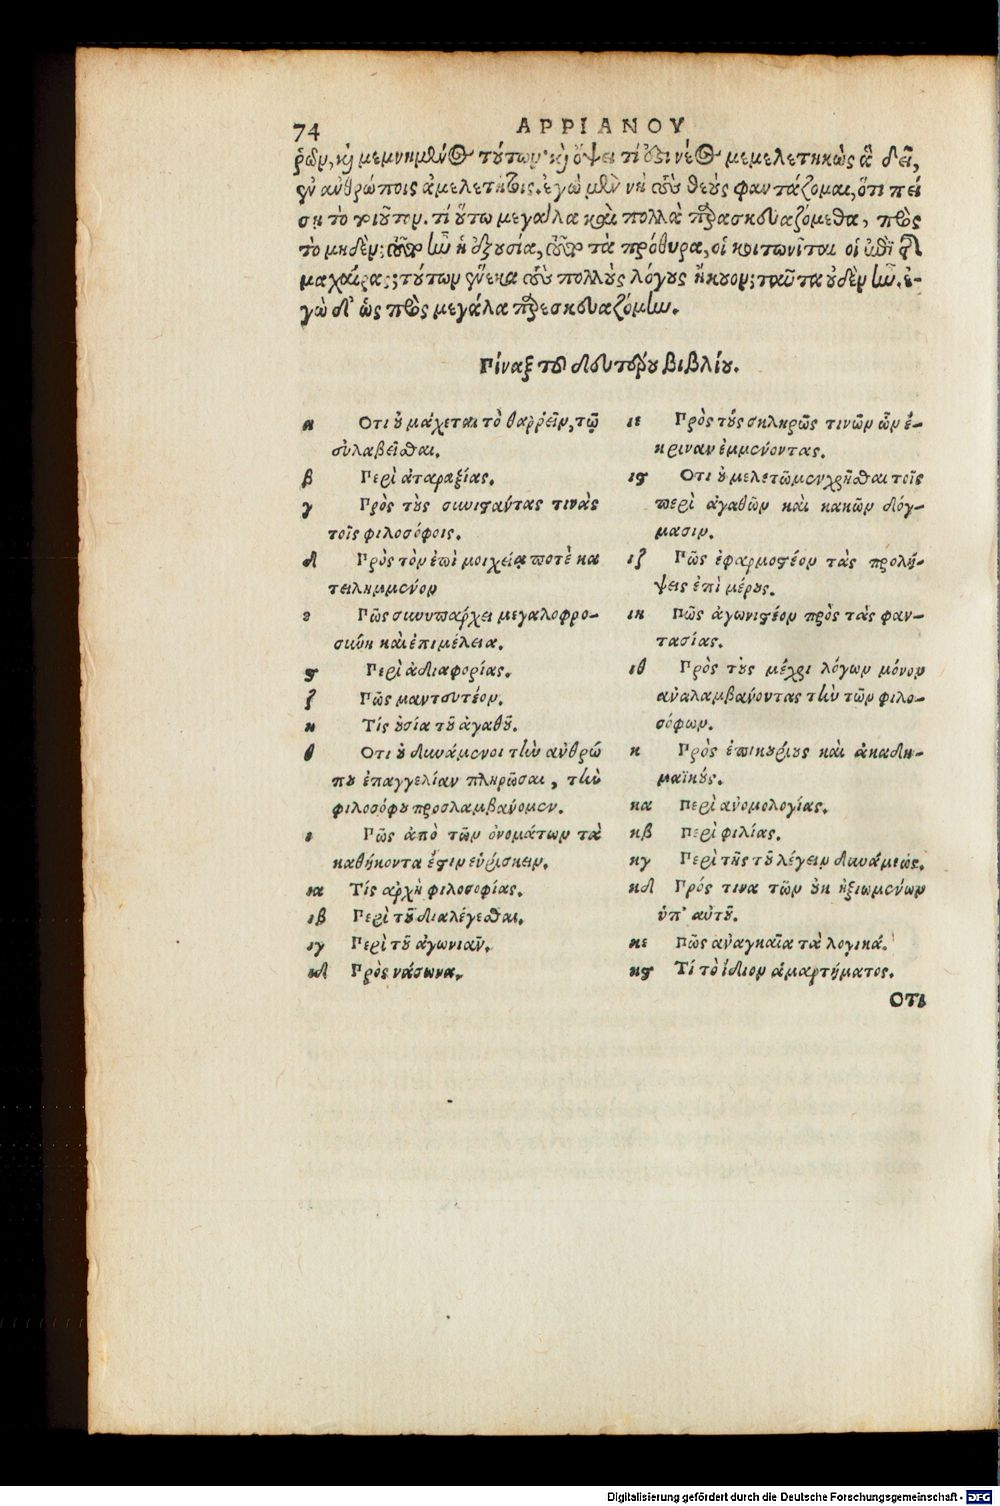 74
ΑΡΡΙΑΝΟΥ
ρῶν, καὶ μεμνημένος τούτων· καὶ ὄψει τί ἐστι νέος μεμελετηκὼς ἃ δεῖ,
ἐν ἀνθρώποις ἀμελετήτοις. ἐγὼ μὲν νὴ τοὺς θεοὺς φαντάζομαι, ὅτι πεί
ση τὸ τοιοῦτον. τί οὕτω μεγάλα καὶ πολλὰ παρασκευαζόμεθα, πρὸς
τὸ μηδέν; τοῦτο ἦν ἡ ἐξουσία, τοῦτο τὰ πρόθυρα, οἱ κοιτωνῖται οἱ ἐπὶ τῆς
μαχαίρας; τούτων ἕνεκα τοὺς πολλοὺς λόγους ἤκουον; ταῦτα οὐδὲν ἦν. ἐ-
γὼ δ' ὡς πρὸς μεγάλα παρεσκευαζόμην.
Πίναξ τοῦ δευτέρου βιβλίου.
α Ὅτι οὐ μάχεται τὸ θαρρεῖν, τῷ
εὐλαβεῖσθαι.
β Περὶ ἀταραξίας.
γ Πρὸς τοὺς συνιστάντας τινὰς
τοῖς φιλοσόφοις.
δ Πρὸς τὸν ἐπὶ μοιχείᾳ ποτὲ κα
τειλημμένον
ε Πῶς συνυπάρχει μεγαλοφρο-
σύνη καὶ ἐπιμέλεια.
ϛ Περὶ ἀδιαφορίας.
ζ Πῶς μαντευτέον.
η Τίς οὐσία τοῦ ἀγαθοῦ.
θ Ὅτι οὐ δυνάμενοι τὴν ἀνθρώ
που ἐπαγγελίαν πληρῶσαι, τὴν
φιλοσόφου προσλαμβάνομεν.
ι Πῶς ἀπὸ τῶν ὀνομάτων τὰ
καθήκοντα ἔστιν εὑρίσκειν.
ια Τίς ἀρχὴ φιλοσοφίας.
ιβ Περὶ τοῦ διαλέγεσθαι.
ιγ Περὶ τοῦ ἀγωνιᾶν.
ιδ Πρὸς νάσωνα.
ιε Πρὸς τοὺς σκληρῶς τινῶν ὧν ἔ-
κριναν ἐμμένοντας.
ιϛ Ὅτι οὐ μελετῶμεν χρῆσθαι τοῖς
περὶ ἀγαθῶν καὶ κακῶν δόγ-
μασιν.
ιζ Πῶς ἐφαρμοστέον τὰς προλή-
ψεις ἐπὶ μέρους.
ιη Πῶς ἀγωνιστέον πρὸς τὰς φαν-
τασίας.
ιθ Πρὸς τοὺς μέχρι λόγων μόνον
ἀναλαμβάνοντας τὴν τῶν φιλο-
σόφων.
κ Πρὸς ἐπικουρίους καὶ ἀκαδη-
μαϊκούς.
κα Περὶ ἀνομολογίας.
κβ Περὶ φιλίας.
κγ Περὶ τῆς τοῦ λέγειν δυνάμεως.
κδ Πρός τινα τῶν οὐκ ἠξιωμένων
ὑπ' αὐτοῦ.
κε Πῶς ἀναγκαῖα τὰ λογικά.
κϛ Τί τὸ ἴδιον ἁμαρτήματος.
ΟΤΙ
Digitalisierung gefördert durch die Deutsche Forschungsgemeinschaft - DFG